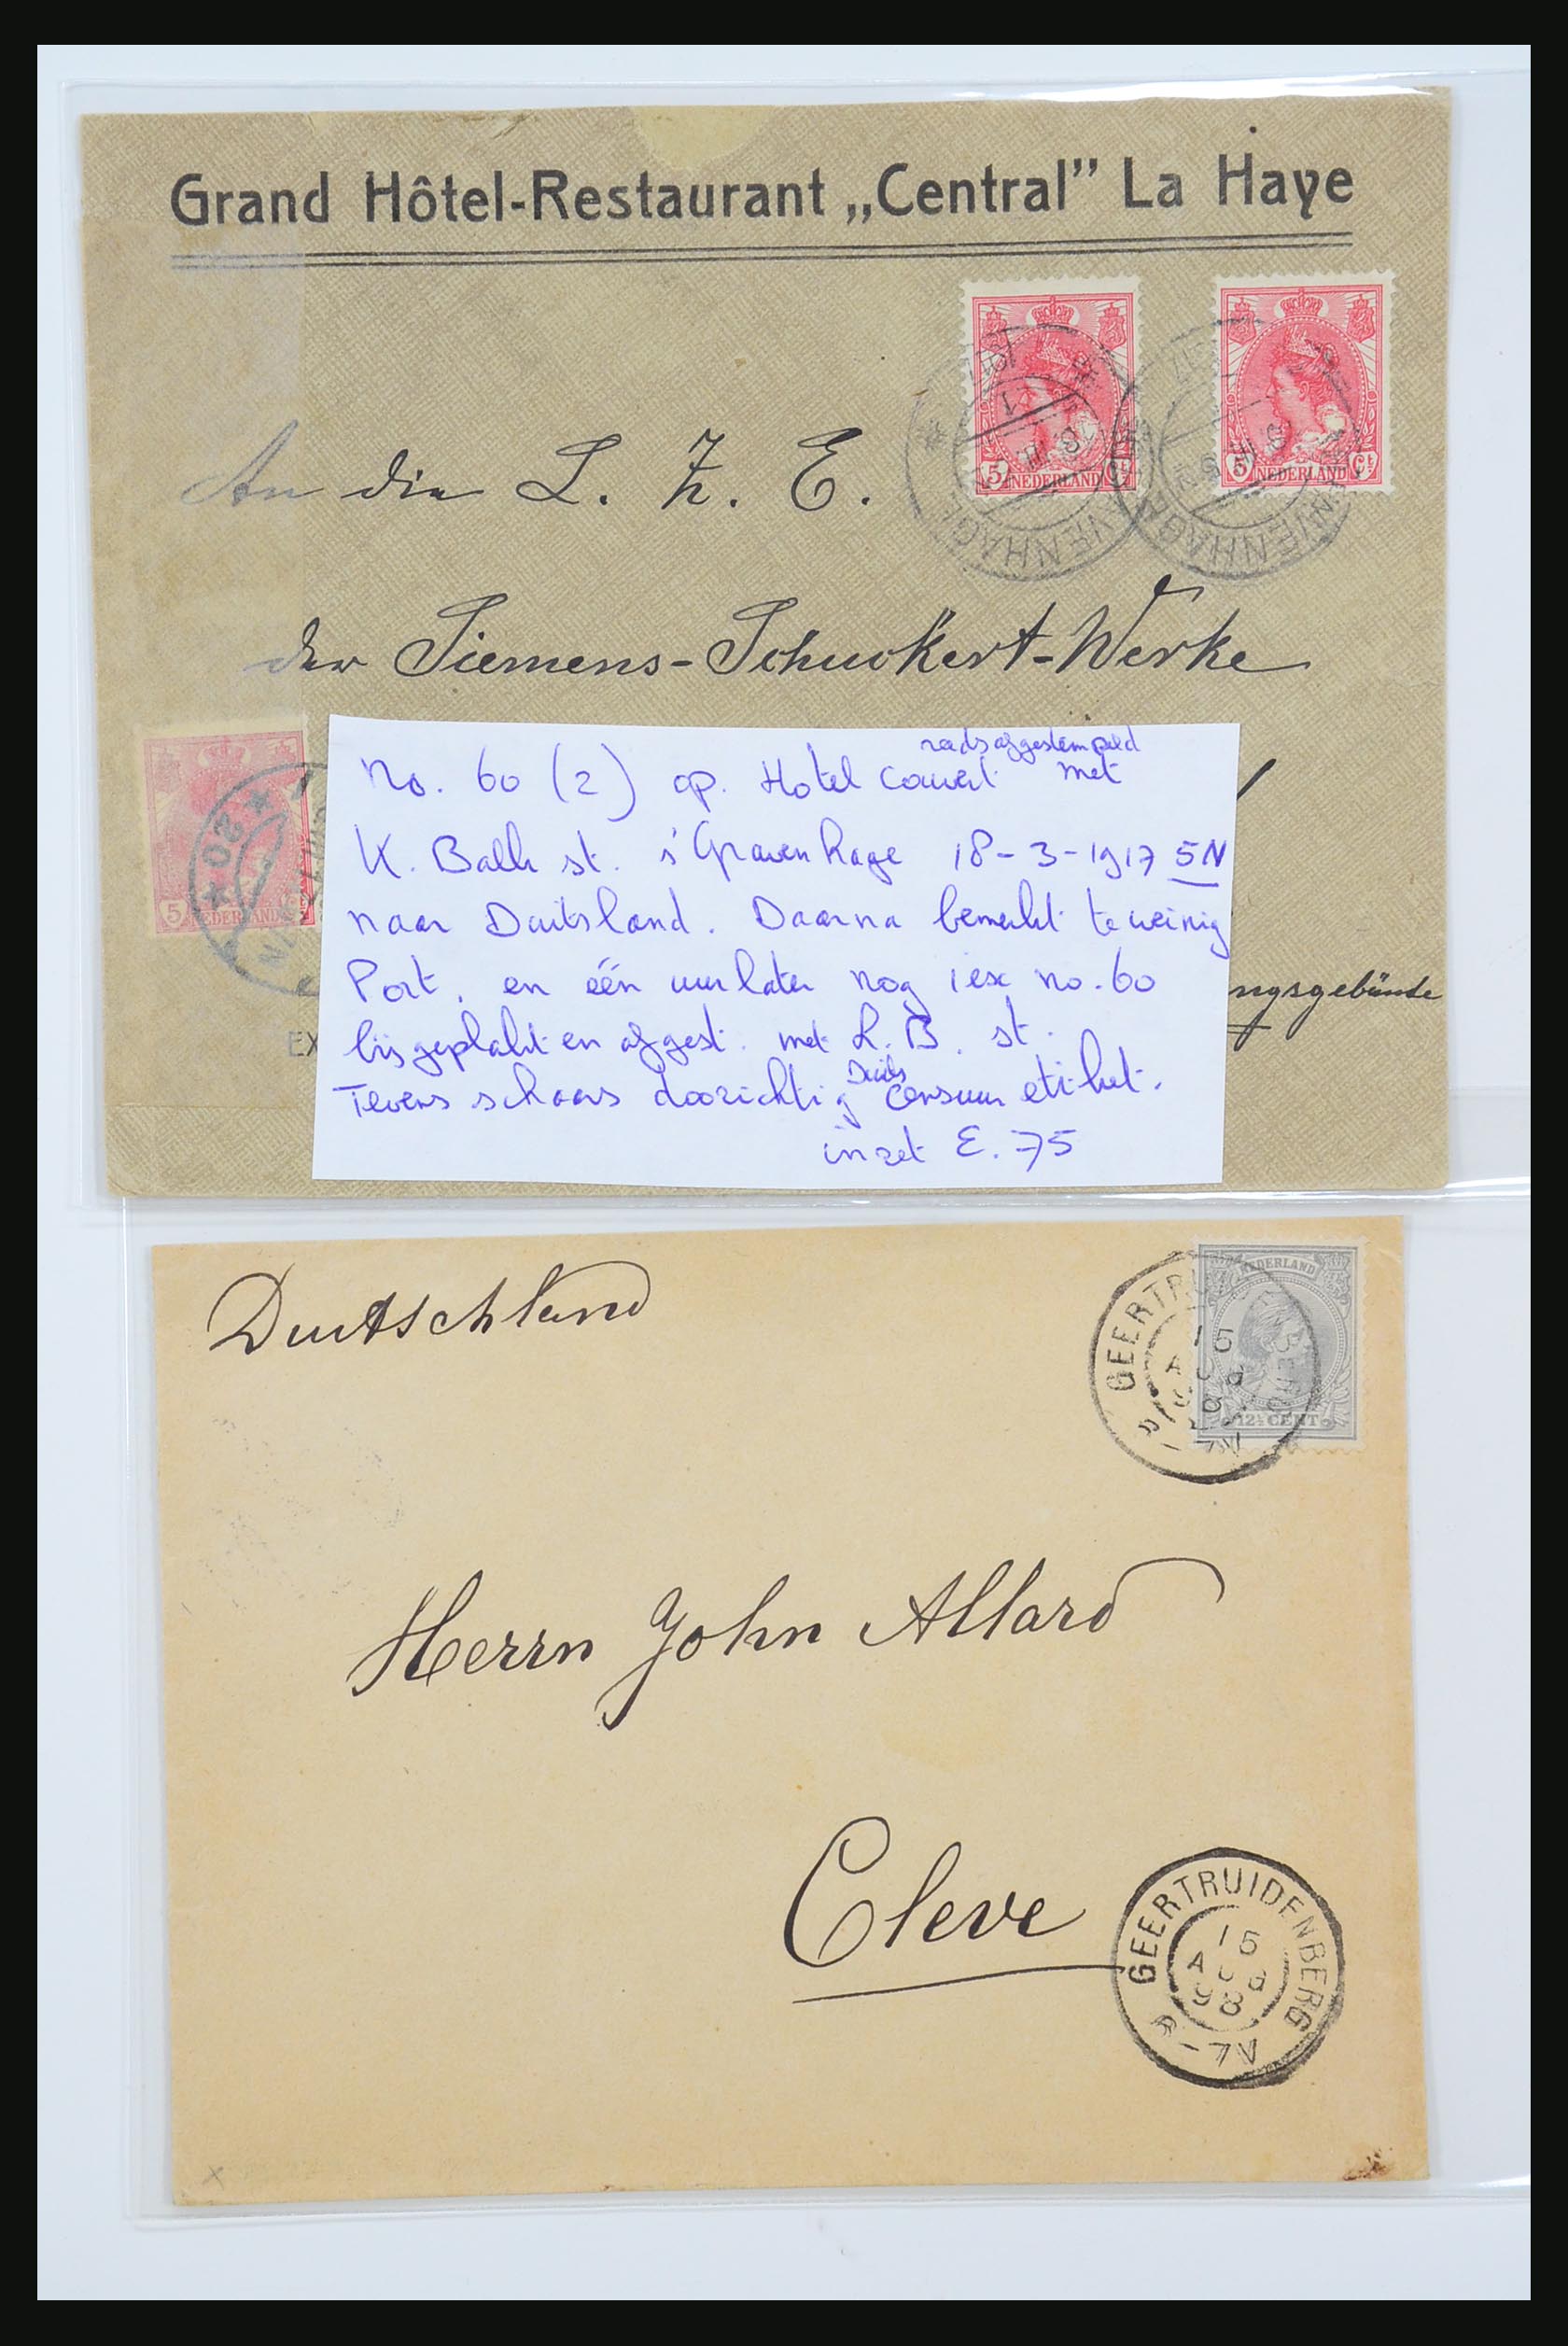 Grand Hôtel-Restaurant „Central” La Haye
5 NEDERLAND Ct
5 NEDERLAND Ct
An die L. Z. E.
der Siemens-Schuckert-Werke
5 NEDERLAND Ct
20
No. 60 (2) op. Hotel couvert reeds afgestempeld met
K. Balk st. s'Gravenhage 18-3-1917 5N
naar Duitsland. Daarna bemerkt te weinig
Port, en één uur later nog 1 ex no. 60
bijgeplakt en afgest. met L.B. st.
Tevens schaars doorzichtig Duits censuur etiket.
inzet E. 75
EX
Deutschland
NEDERLAND
12½ CENT
15
AUG
98
Herrn John Allard
Cleve
GEERTRUIDENBERG
15
AUG
98